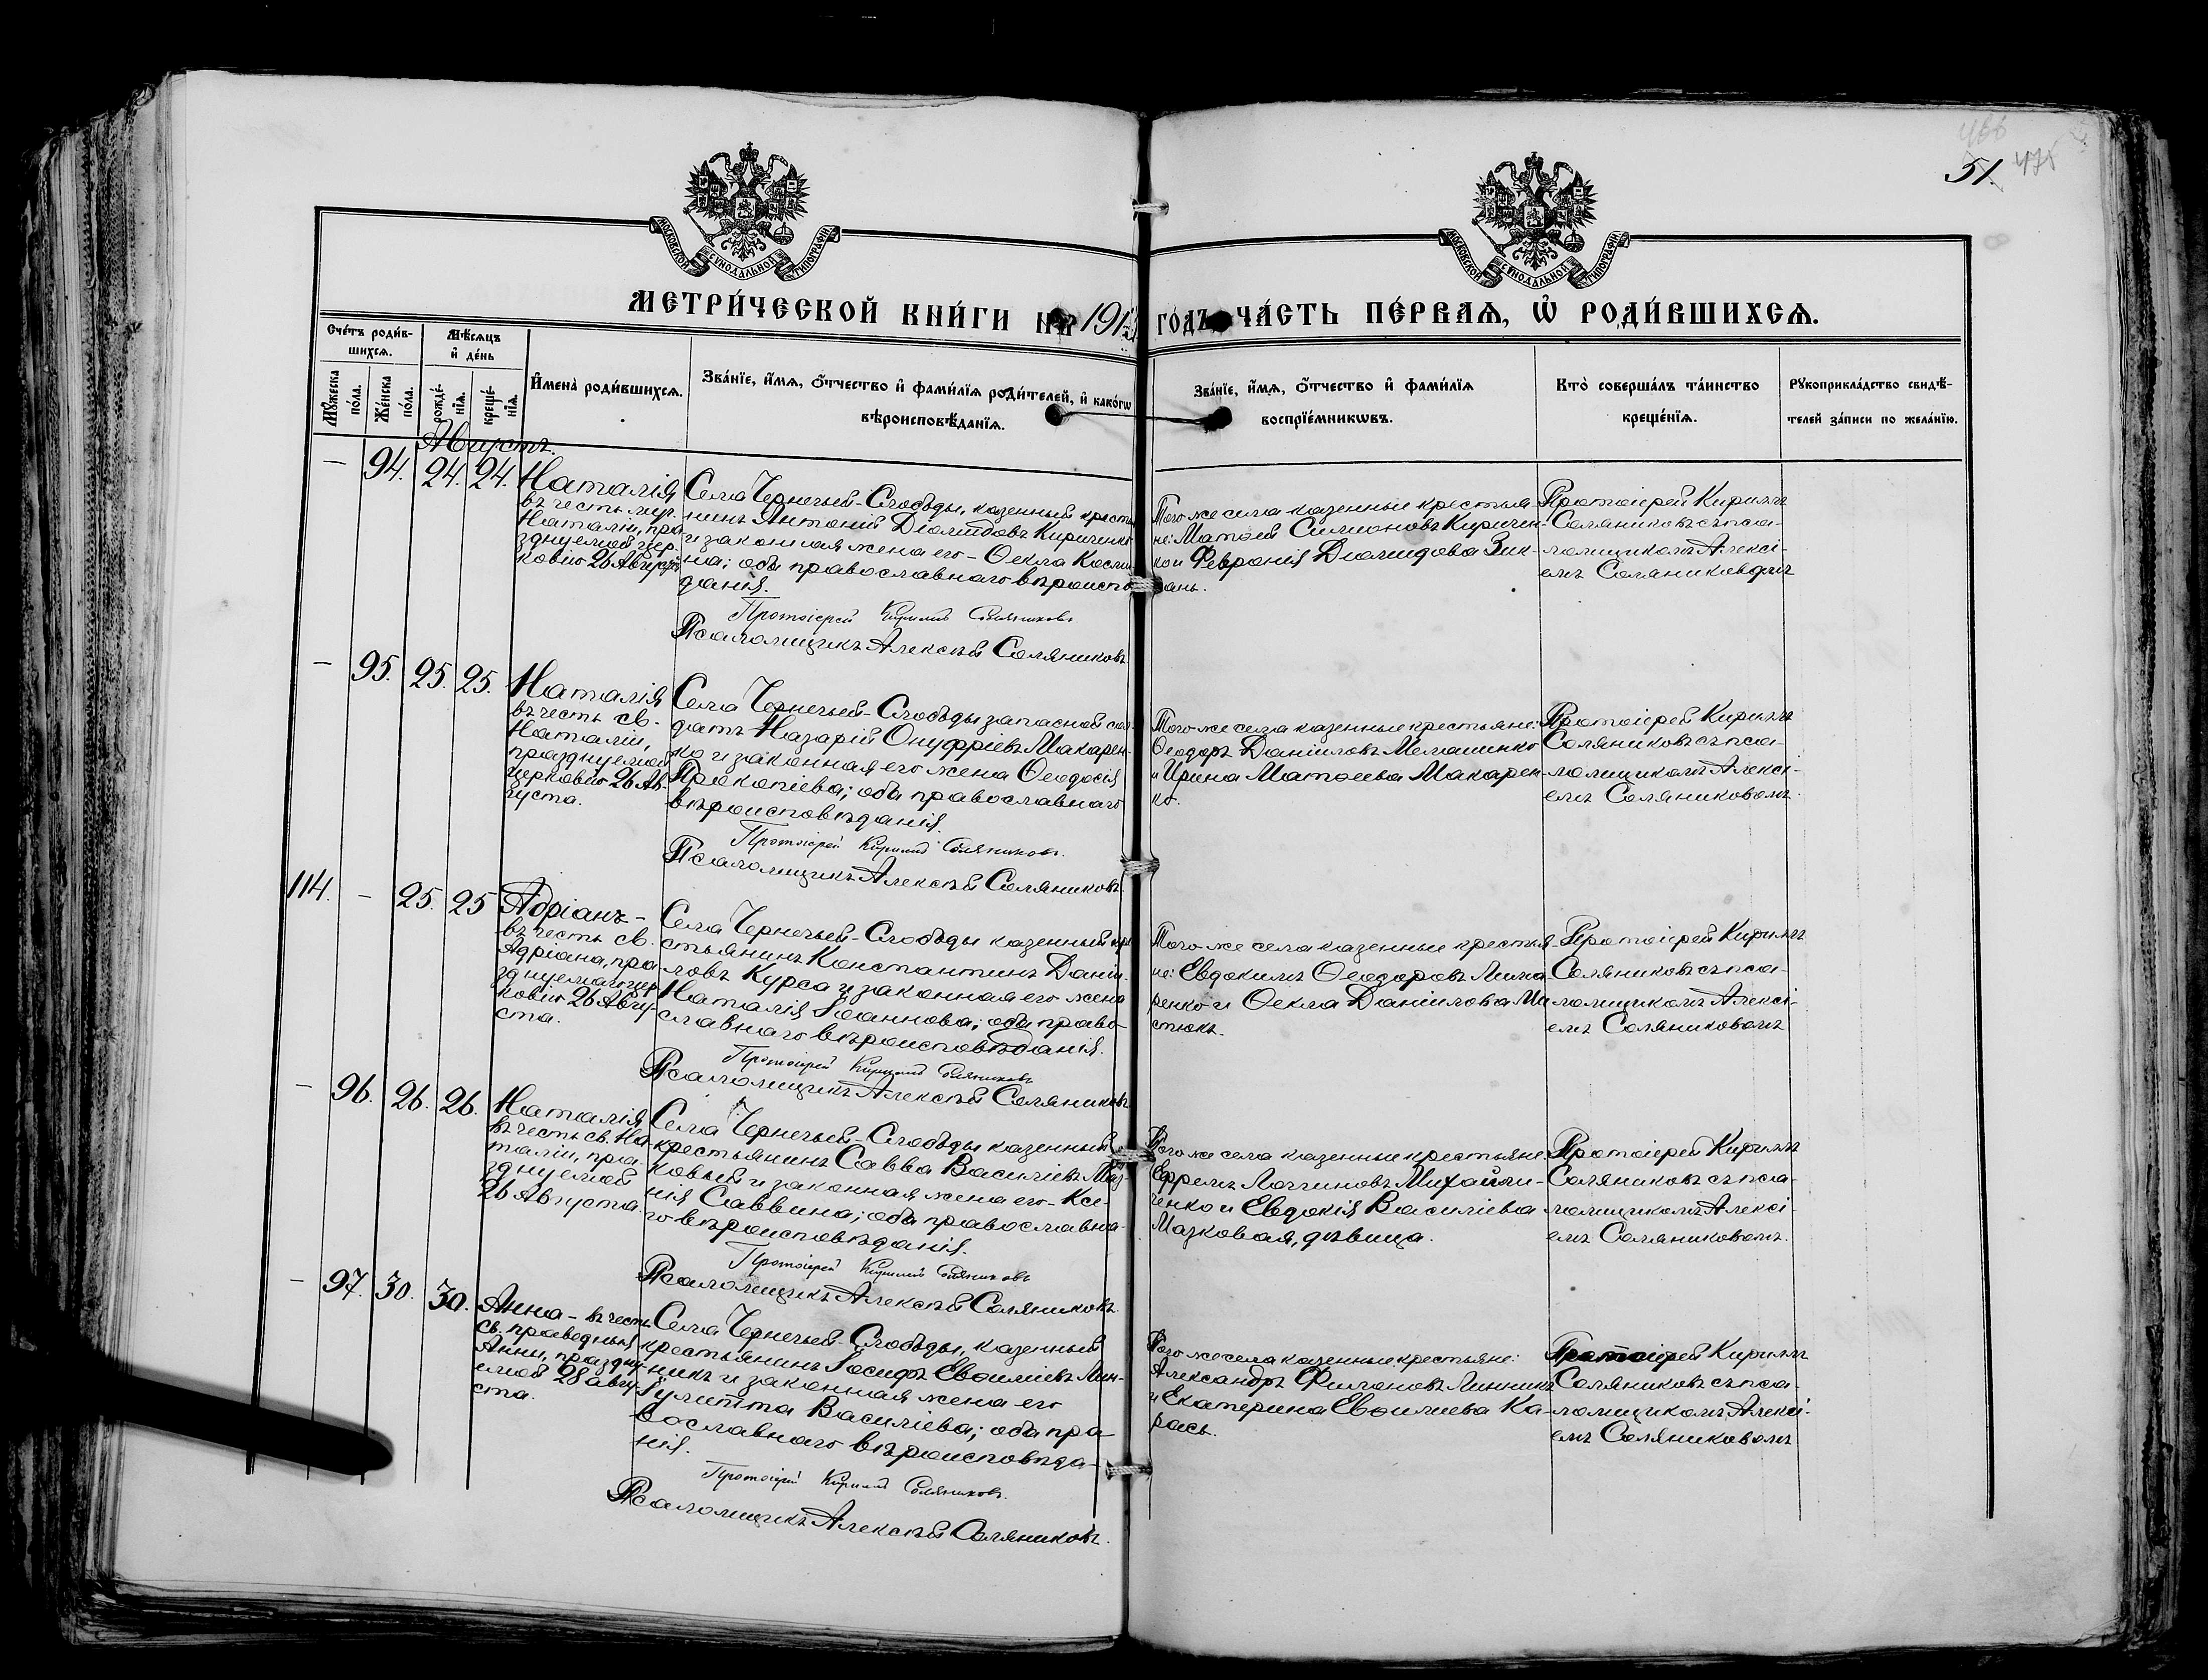 466
51. 475
МОСКОВСКОЙ СѴНОДАЛЬНОЙ ТИПОГРАФІИ
МОСКОВСКОЙ СѴНОДАЛЬНОЙ ТИПОГРАФІИ
МЕТРИ́ЧЕСКОЙ КНИ́ГИ НА 191 ГОДЪ ЧА́СТЬ ПЕ́РВАЯ, Ѽ РОДИ́ВШИХСЯ.
Сче́тъ роди́в-
шихся.
Мѣ́сяцъ
и҆ де́нь
Му́жеска
по́ла.
Же́нска
по́ла.
рожде́-
нїя.
креще́-
нїя.
И҆мена̀ роди́вшихся.
Зва́нїе, и҆́мя, ѻ҆́тчество и҆ фами́лїя роди́телей, и҆ како́гѡ
вѣроисповѣ́данїя.
Зва́нїе, и҆́мя, ѻ҆́тчество и҆ фами́лїя
воспрїе́мникѡвъ.
Кто̀ соверша́лъ та́инство
креще́нїя.
Рꙋкоприкла́дство свидѣ́-
телей за́писи по жела́нїю.
Августъ.
— 94. 24. 24.
Наталія
въ честь муч.
Наталіи, пра-
зднуемой цер-
ковію 26 Августа
Села Чернечьей-Слободы, казенный кресть
нинъ Антоній Діомидовъ Кириченко
и законная жена его - Ѳекла Косми
на; оба православнаго вѣроиспо
данія.
Протоіерей Кириллъ Соляниковъ
Псаломщикъ Алексѣй Соляниковъ
Того же села казенные крестья-
не: Матѳей Симоновъ Киричен-
ко и Февронія Діомидова Зик-
рань.
Протоіерей Кириллъ
Соляниковъ съ пса-
ломщикомъ Алексі-
емъ Соляниковымъ
— 95. 25. 25.
Наталія
въ честь св.
Наталіи,
празднуемой
церковію 26 Ав-
густа.
Села Чернечьей-Слободы запасной сол
датъ Назарій Онуфріевъ Макарен-
ко и законная его жена Ѳеодосія
Прокопіева; оба православнаго
вѣроисповѣданія.
Протоіерей Кириллъ Соляниковъ.
Псаломщикъ Алексѣй Соляниковъ.
Того же села казенные крестьяне:
Ѳеодоръ Даніиловъ Мемашенко
и Ирина Матѳеева Макарен-
ко.
Протоіерей Кириллъ
Соляниковъ съ пса-
ломщикомъ Алексі-
емъ Соляниковомъ.
114. — 25. 25
Адріанъ -
въ честь св.
Адріана, пра-
зднуемаго цер-
ковію 26 Авгу-
ста.
Села Чернечьей-Слободы казенный кре
стьянинъ Константинъ Даніи-
ловъ Курса и законная его жена
Наталія Іоаннова; оба право-
славнаго вѣроисповѣданія.
Протоіерей Кириллъ Соляниковъ
Псаломщикъ Алексѣй Соляниковъ
Того же села казенные крестья-
не: Евдокимъ Ѳеодоровъ Мина-
ренко и Ѳекла Даніилова Ми
стюкъ.
Протоіерей Кириллъ
Соляниковъ съ пса-
ломщикомъ Алексі-
емъ Соляниковомъ
— 96. 26. 26.
Наталія
въ честь св. На-
таліи, пра-
зднуемой
26 Августа.
Села Чернечьей-Слободы казенный
крестьянинъ Савва Василіевъ Маз-
ковый и законная жена его - Ксе-
нія Саввина; оба православна-
го вѣроисповѣданія.
Протоіерей Кириллъ Соляниковъ
Псаломщикъ Алексѣй Соляниковъ.
Того же села казенные крестьяне:
Ефремъ Логгиновъ Михайли-
ченко и Евдокія Василіева
Мазковая, дѣвица.
Протоіерей Кириллъ
Соляниковъ съ пса-
ломщикомъ Алексі-
емъ Соляниковомъ.
— 97. 30. 30.
Анна - въ честь
св. праведныя
Анны, праздну-
емой 28 авгу-
ста.
Села Чернечьей-Слободы, казенный
крестьянинъ Іосифъ Евѳиміевъ Лин-
никъ и законная жена его
Іулитта Василіева; оба пра-
вославнаго вѣроисповѣда-
нія.
Протоіерей Кириллъ Соляниковъ.
Псаломщикъ Алексѣй Соляниковъ.
Того же села казенные крестьяне:
Александръ Филоновъ Линникъ
и Екатерина Евѳиміева Ка-
рась.
Протоіерей Кириллъ
Соляниковъ съ пса-
ломщикомъ Алексі-
емъ Соляниковомъ